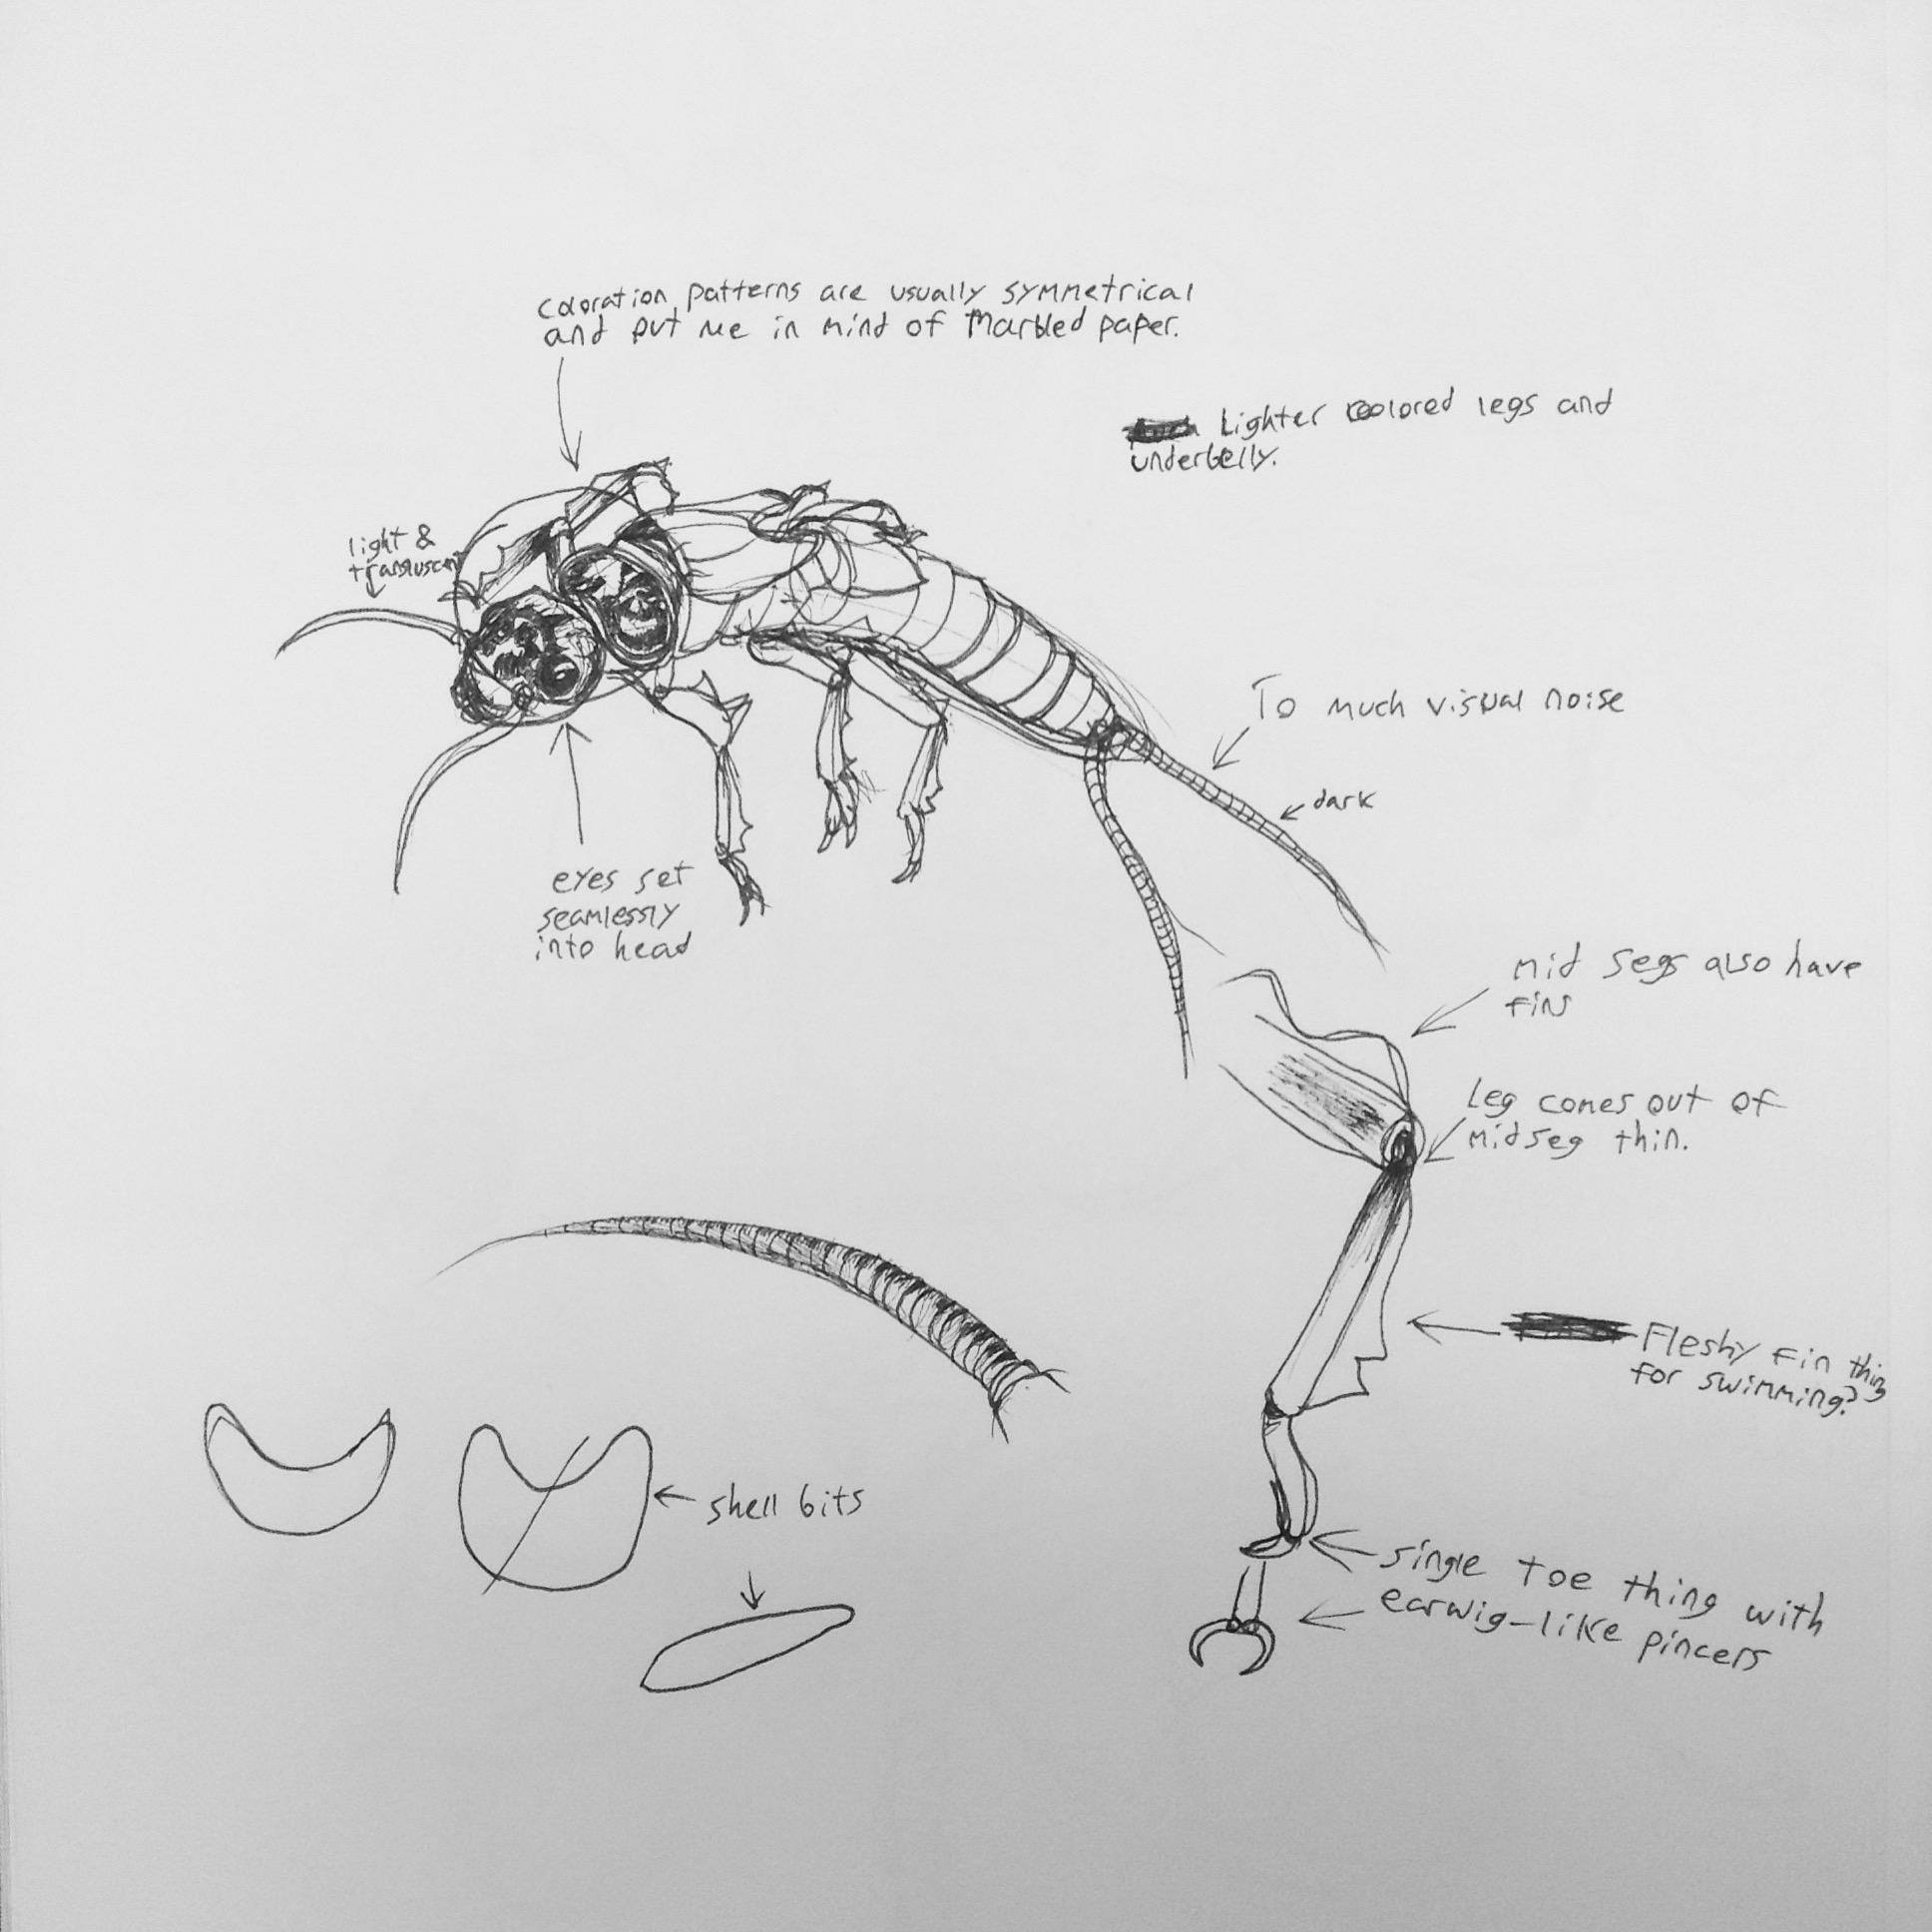 coloration patterns are usually symmetrical
and put me in mind of Marbled paper.
Lighter colored legs and
underbelly.
light &
To much visual noise
dark
eyes set
seamlessly
into head
mid segs also have
fins
Leg comes out of
midseg thin.
Fleshy fin thing
for swimming?
shell bits
single toe thing with
earwig-like pincers